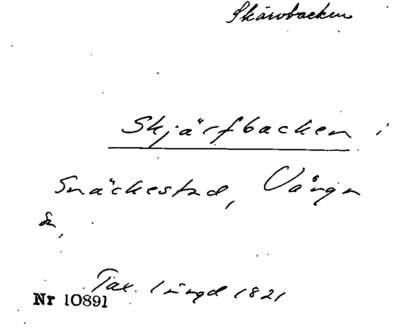 Skärvbacken
Skjärfbacken i
Snäckestad, Vånga
sn,
Tax. längd 1821
Nr 10891